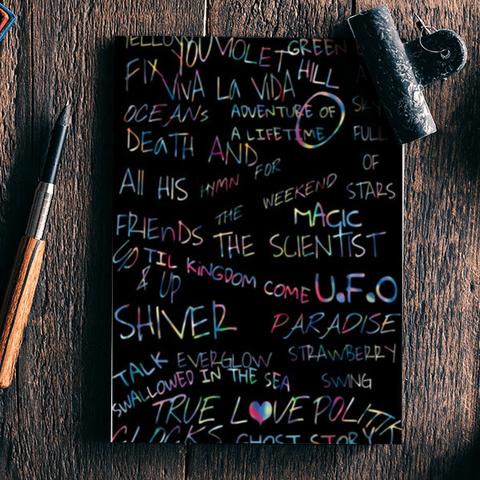 YELLOW
YOU VIOLET GREEN
FIX VIVA LA VIDA HILL
OCEANS ADVENTURE OF
A LIFETIME
SKY
FULL
OF
STARS
DEATH AND
All HIS HYMN FOR
THE WEEKEND
FRIENDS MAGIC
THE SCIENTIST
UP TIL KINGDOM COME U.F.O
& UP
SHIVER PARADISE
TALK EVERGLOW STRAWBERRY
SWALLOWED IN THE SEA SWING
TRUE LOVE POLITIK
CLOCKS GHOST STORY